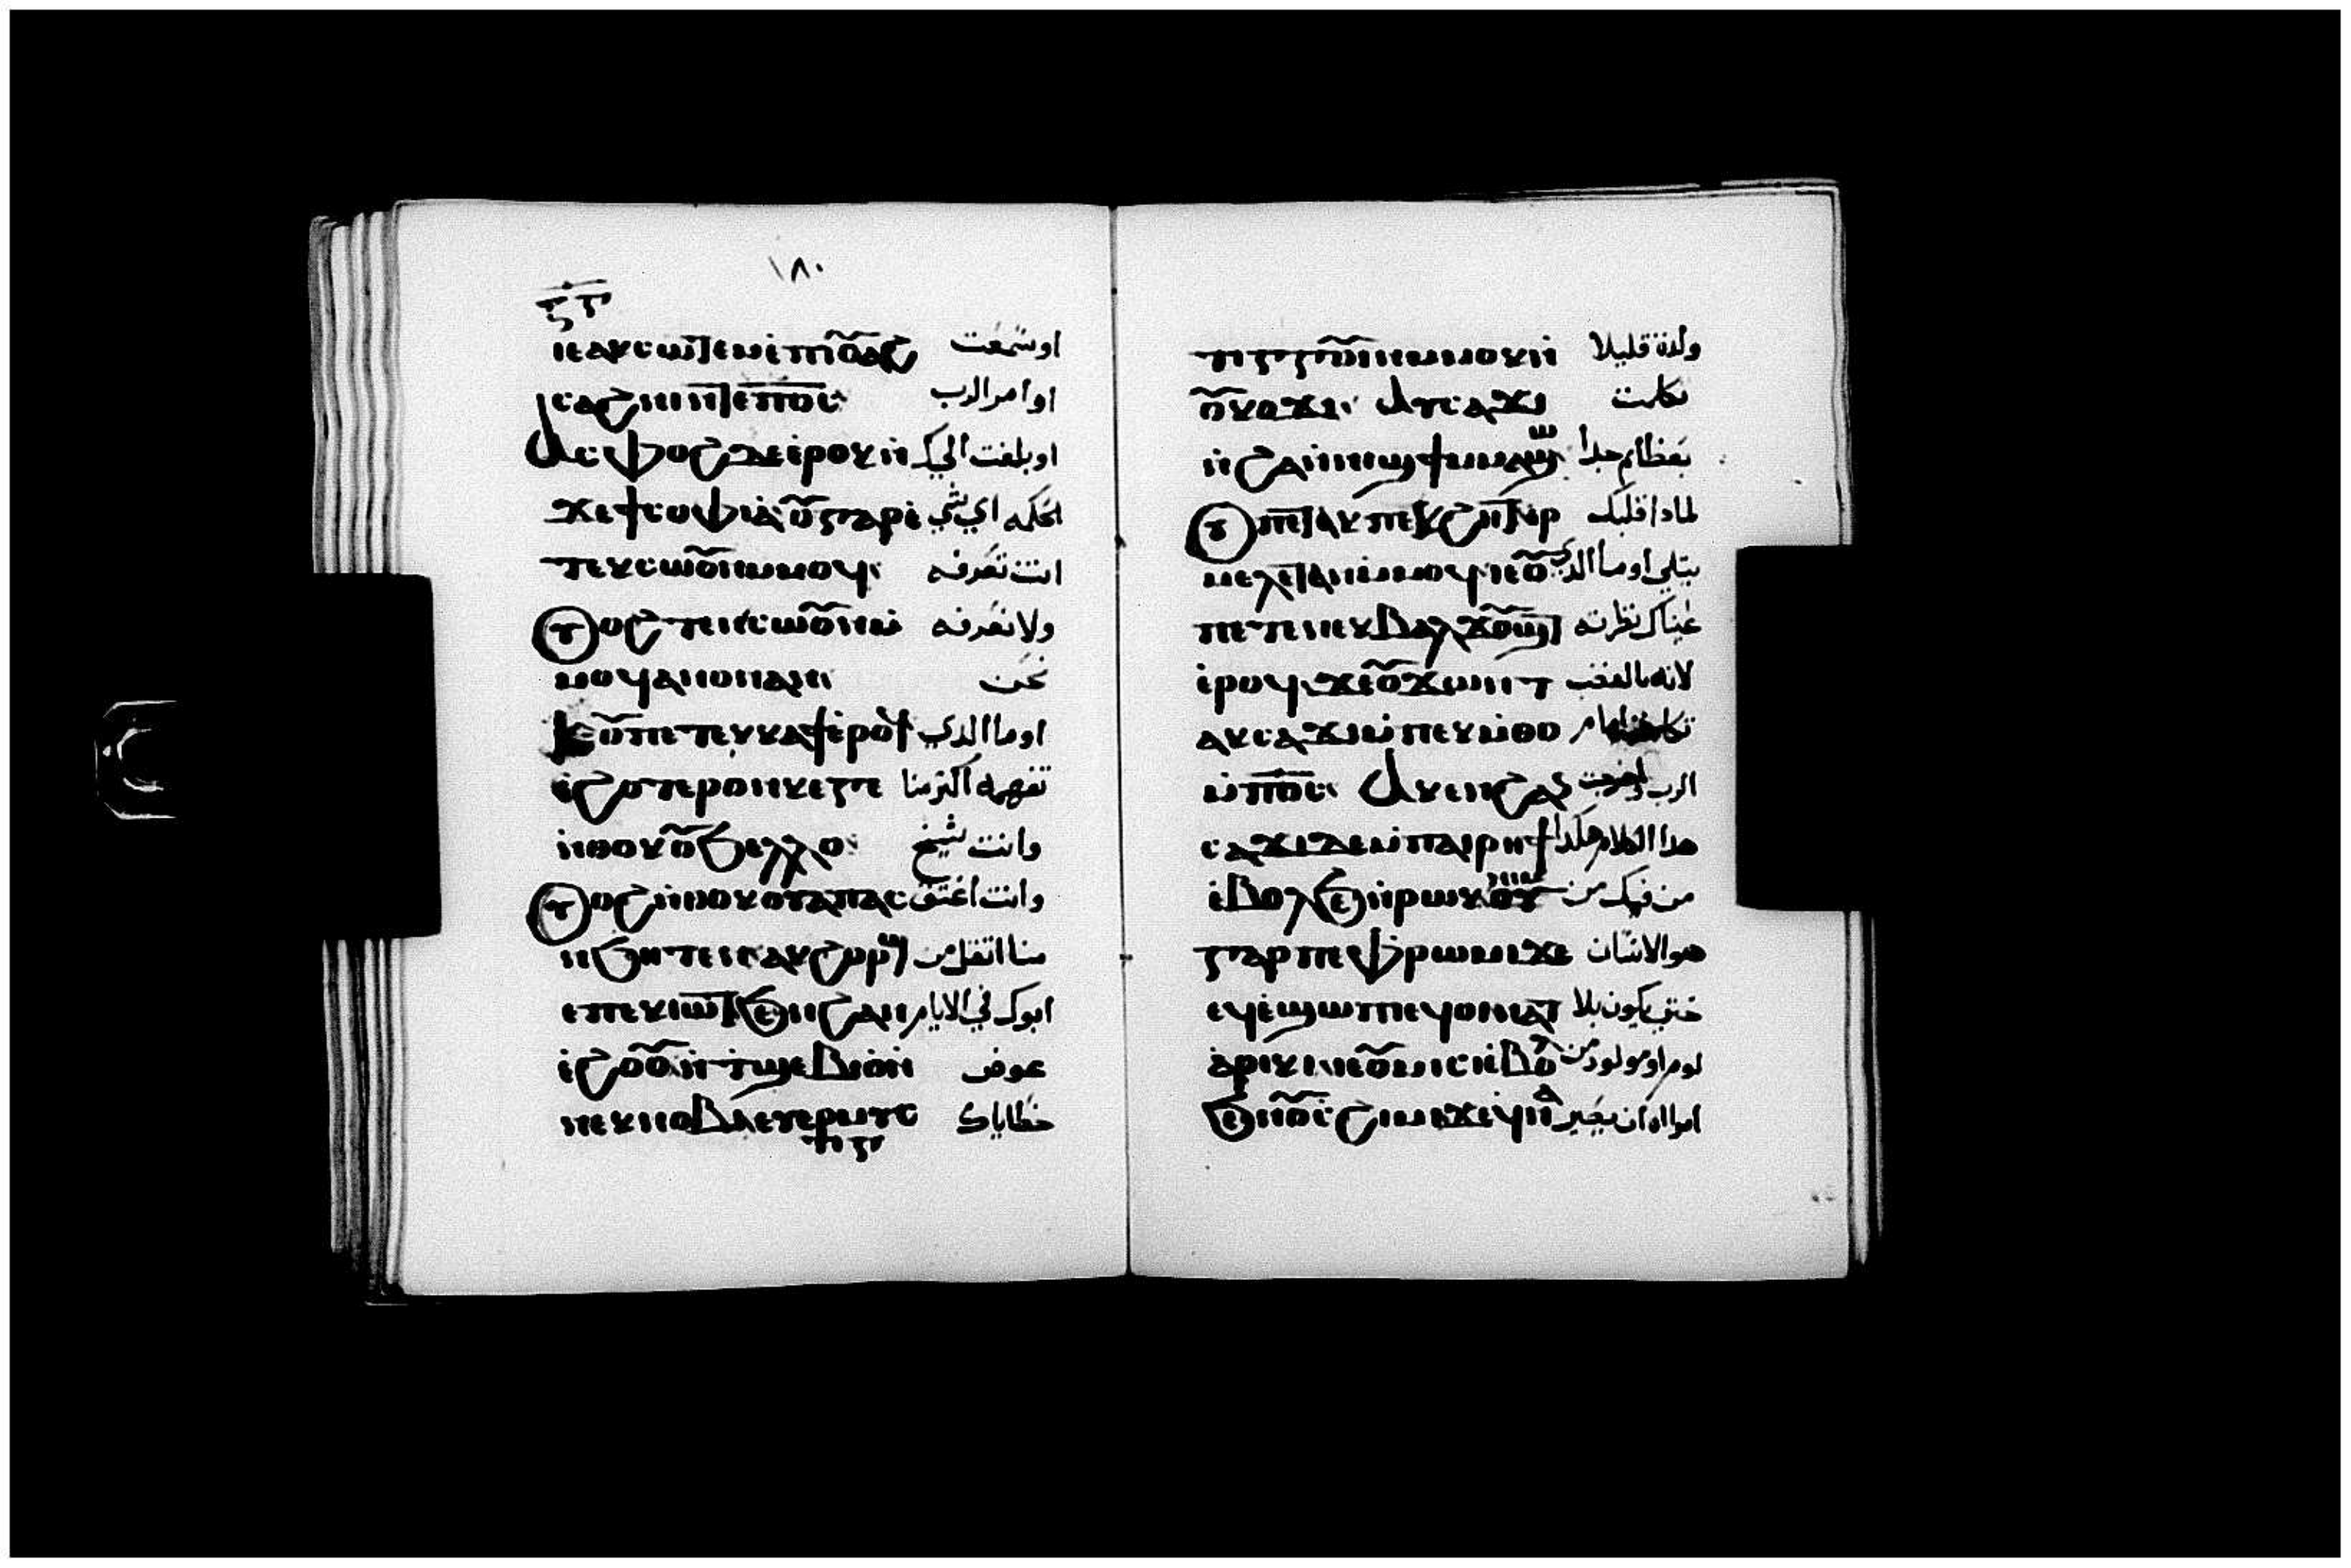 ١٨٠
ⲓⲉ ⲁⲕⲥⲱⲧⲉⲙ ⲉⲛⲓⲟⲩⲁϩ اوسمعت
ⲥⲁϩⲛⲓ ⲛⲧⲉ ⲡϭⲥ اوامر الرب
ⲁⲥⲫⲟϩ ⲇⲉ ⲉⲣⲟⲕ ⲛ اوبلغت اليك
ϫⲉ ϯⲥⲟⲫⲓⲁ ⲟⲩ ⲅⲁⲣ ⲉ الحكمه اي شي
ⲧⲉⲕⲥⲱⲟⲩⲛ ⲙⲙⲟϥ انت تعرفه
ⲟⲩⲟϩ ⲧⲉⲛⲥⲱⲟⲩⲛ ⲙ ولانعرفه
ⲙⲟϥ ⲁⲛⲟⲛ ⲁⲛ نحن
ⲓⲉ ⲟⲩ ⲡⲉⲧⲉⲕⲕⲁϯ ⲉⲣⲟϥ اوما الدي
ⲉϩⲟⲧⲉⲣⲟⲛ ⲕⲉ ⲅⲉ تفهمه اكتر منا
ⲛⲑⲟⲕ ⲟⲩϧⲉⲗⲗⲟ وانت شيخ
ⲟⲩⲟϩ ⲛⲑⲟⲕ ⲟⲩⲁⲡⲁⲥ وانت اعتق
ⲛϧⲏⲧⲉⲛ ⲁⲕϩⲣⲟϣ منا اتقل من
ⲉⲡⲉⲕⲓⲱⲧ ϧⲉⲛ ϩⲁⲛ ابوك في الايام
ⲉϩⲟⲟⲩ ⲛⲧϣⲉⲃⲓⲱ ⲛ عوض
ⲛⲉⲕⲛⲟⲃⲓ خطاياك
ⲙⲙⲟⲕ ⲛ قليلا
ⲟⲩⲕⲟⲩϫⲓ ⲁⲕⲥⲁϫⲓ تكلمت
ⲛϩⲁⲛⲛⲓϣϯ ⲉⲙⲁϣⲱ بعظايم جدا
ⲟⲩ ⲡⲉⲧⲁ ⲡⲉⲕϩⲏⲧ ⲉⲣ لمادا قلبك
ⲙⲉⲗⲉⲧⲁⲛ ⲙⲙⲟϥ ⲓⲉ ⲟⲩ اوما الدي
ⲡⲉⲧⲉ ⲛⲉⲕⲃⲁⲗ ϫⲟⲩϣⲧ عيناك نظرته
ⲉⲣⲟϥ ϫⲉ ⲟⲩϫⲱⲛⲧ لانه بالغضب
ⲁⲕⲥⲁϫⲓ ⲙⲡⲉⲙⲑⲟ امام
ⲙⲡϭⲥ ⲁⲕⲉⲛ ϩⲁⲛ الرب
ⲥⲁϫⲓ ⲇⲉ ⲙⲡⲁⲓⲣⲏϯ هدا الكلام هكدا
ⲉⲃⲟⲗ ϧⲉⲛ ⲣⲱⲕ ⲟⲩ من فيك من
ⲅⲁⲣ ⲡⲉ ⲫⲣⲱⲙⲓ ϫⲉ هو الانسان
ⲉϥⲉϣⲱⲡⲓ ⲉϥⲟⲓ ⲛⲁⲧ حتي يكون بلا
ⲁⲣⲓⲕⲓ ⲓⲉ ⲟⲩⲙⲓⲥⲓ ⲉⲃⲟⲗ لوم او مولود من
ϧⲉⲛ ⲟⲩⲥϩⲓⲙⲓ ϫⲉ ϥⲛⲁ امراه ان يصير